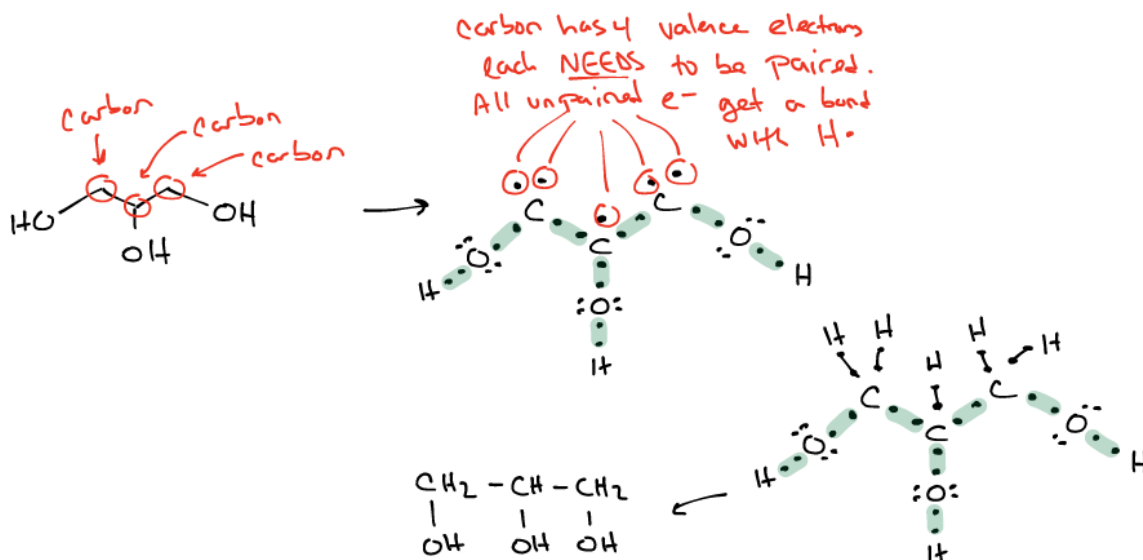 carbon has 4 valence electrons
each NEEDS to be paired.
All unpaired e- get a bond
with H•
carbon
carbon
carbon
HO
OH
OH
C
C
C
O
O
O
H
H
H
H
H
H
H
H
C
C
C
O
O
O
H
H
H
CH2 - CH - CH2
OH OH OH